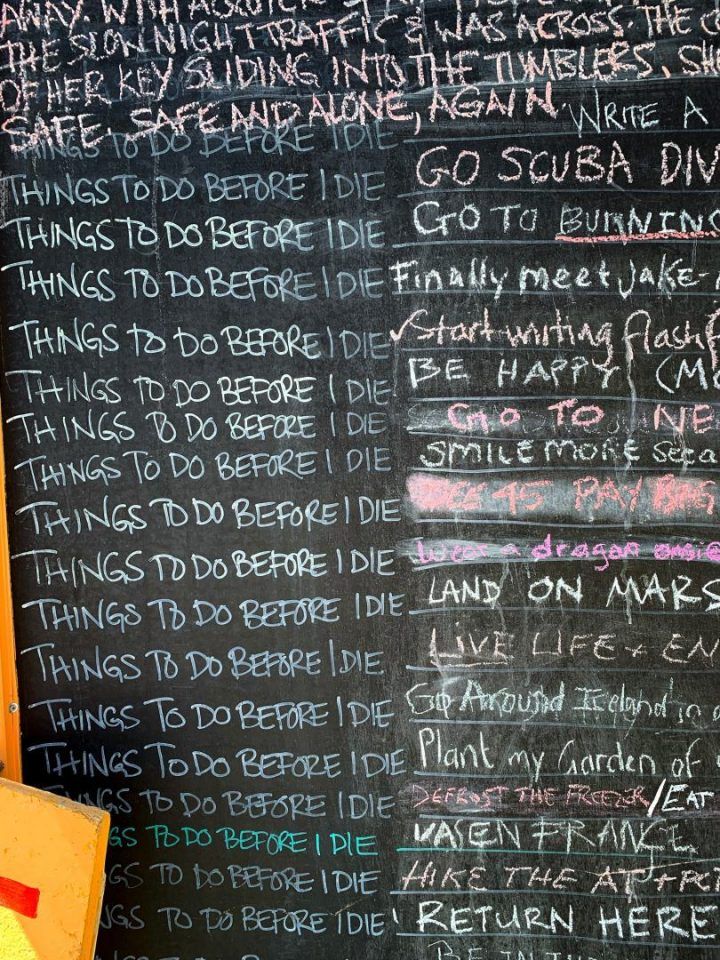 AWAY WITH A
THE SLOW NIGHT TRAFFIC & WAS ACROSS THE
OF HER KEY SLIDING INTO THE TUMBLERS. SH
SAFE. SAFE AND ALONE, AGAIN.
THINGS TO DO BEFORE I DIE WRITE A
THINGS TO DO BEFORE I DIE GO SCUBA DIV
THINGS TO DO BEFORE I DIE GO TO BURNING
THINGS TO DO BEFORE I DIE Finally meet Jake-
THINGS TO DO BEFORE I DIE ✓Start writing flash f
THINGS TO DO BEFORE I DIE BE HAPPY (MO
THINGS TO DO BEFORE I DIE GO TO NE
THINGS TO DO BEFORE I DIE SMILE MORE
THINGS TO DO BEFORE I DIE SEE 45 PAY
THINGS TO DO BEFORE I DIE Wear a dragon onsie
THINGS TO DO BEFORE I DIE LAND ON MARS
THINGS TO DO BEFORE I DIE LIVE LIFE + EN
THINGS TO DO BEFORE I DIE Go Around Iceland in a
THINGS TO DO BEFORE I DIE Plant my Garden of
THINGS TO DO BEFORE I DIE DEFROST THE FREEZER/EAT
GS TO DO BEFORE I DIE FRANCE
GS TO DO BEFORE I DIE HIKE THE AT +
NGS TO DO BEFORE I DIE' RETURN HERE
BE IN